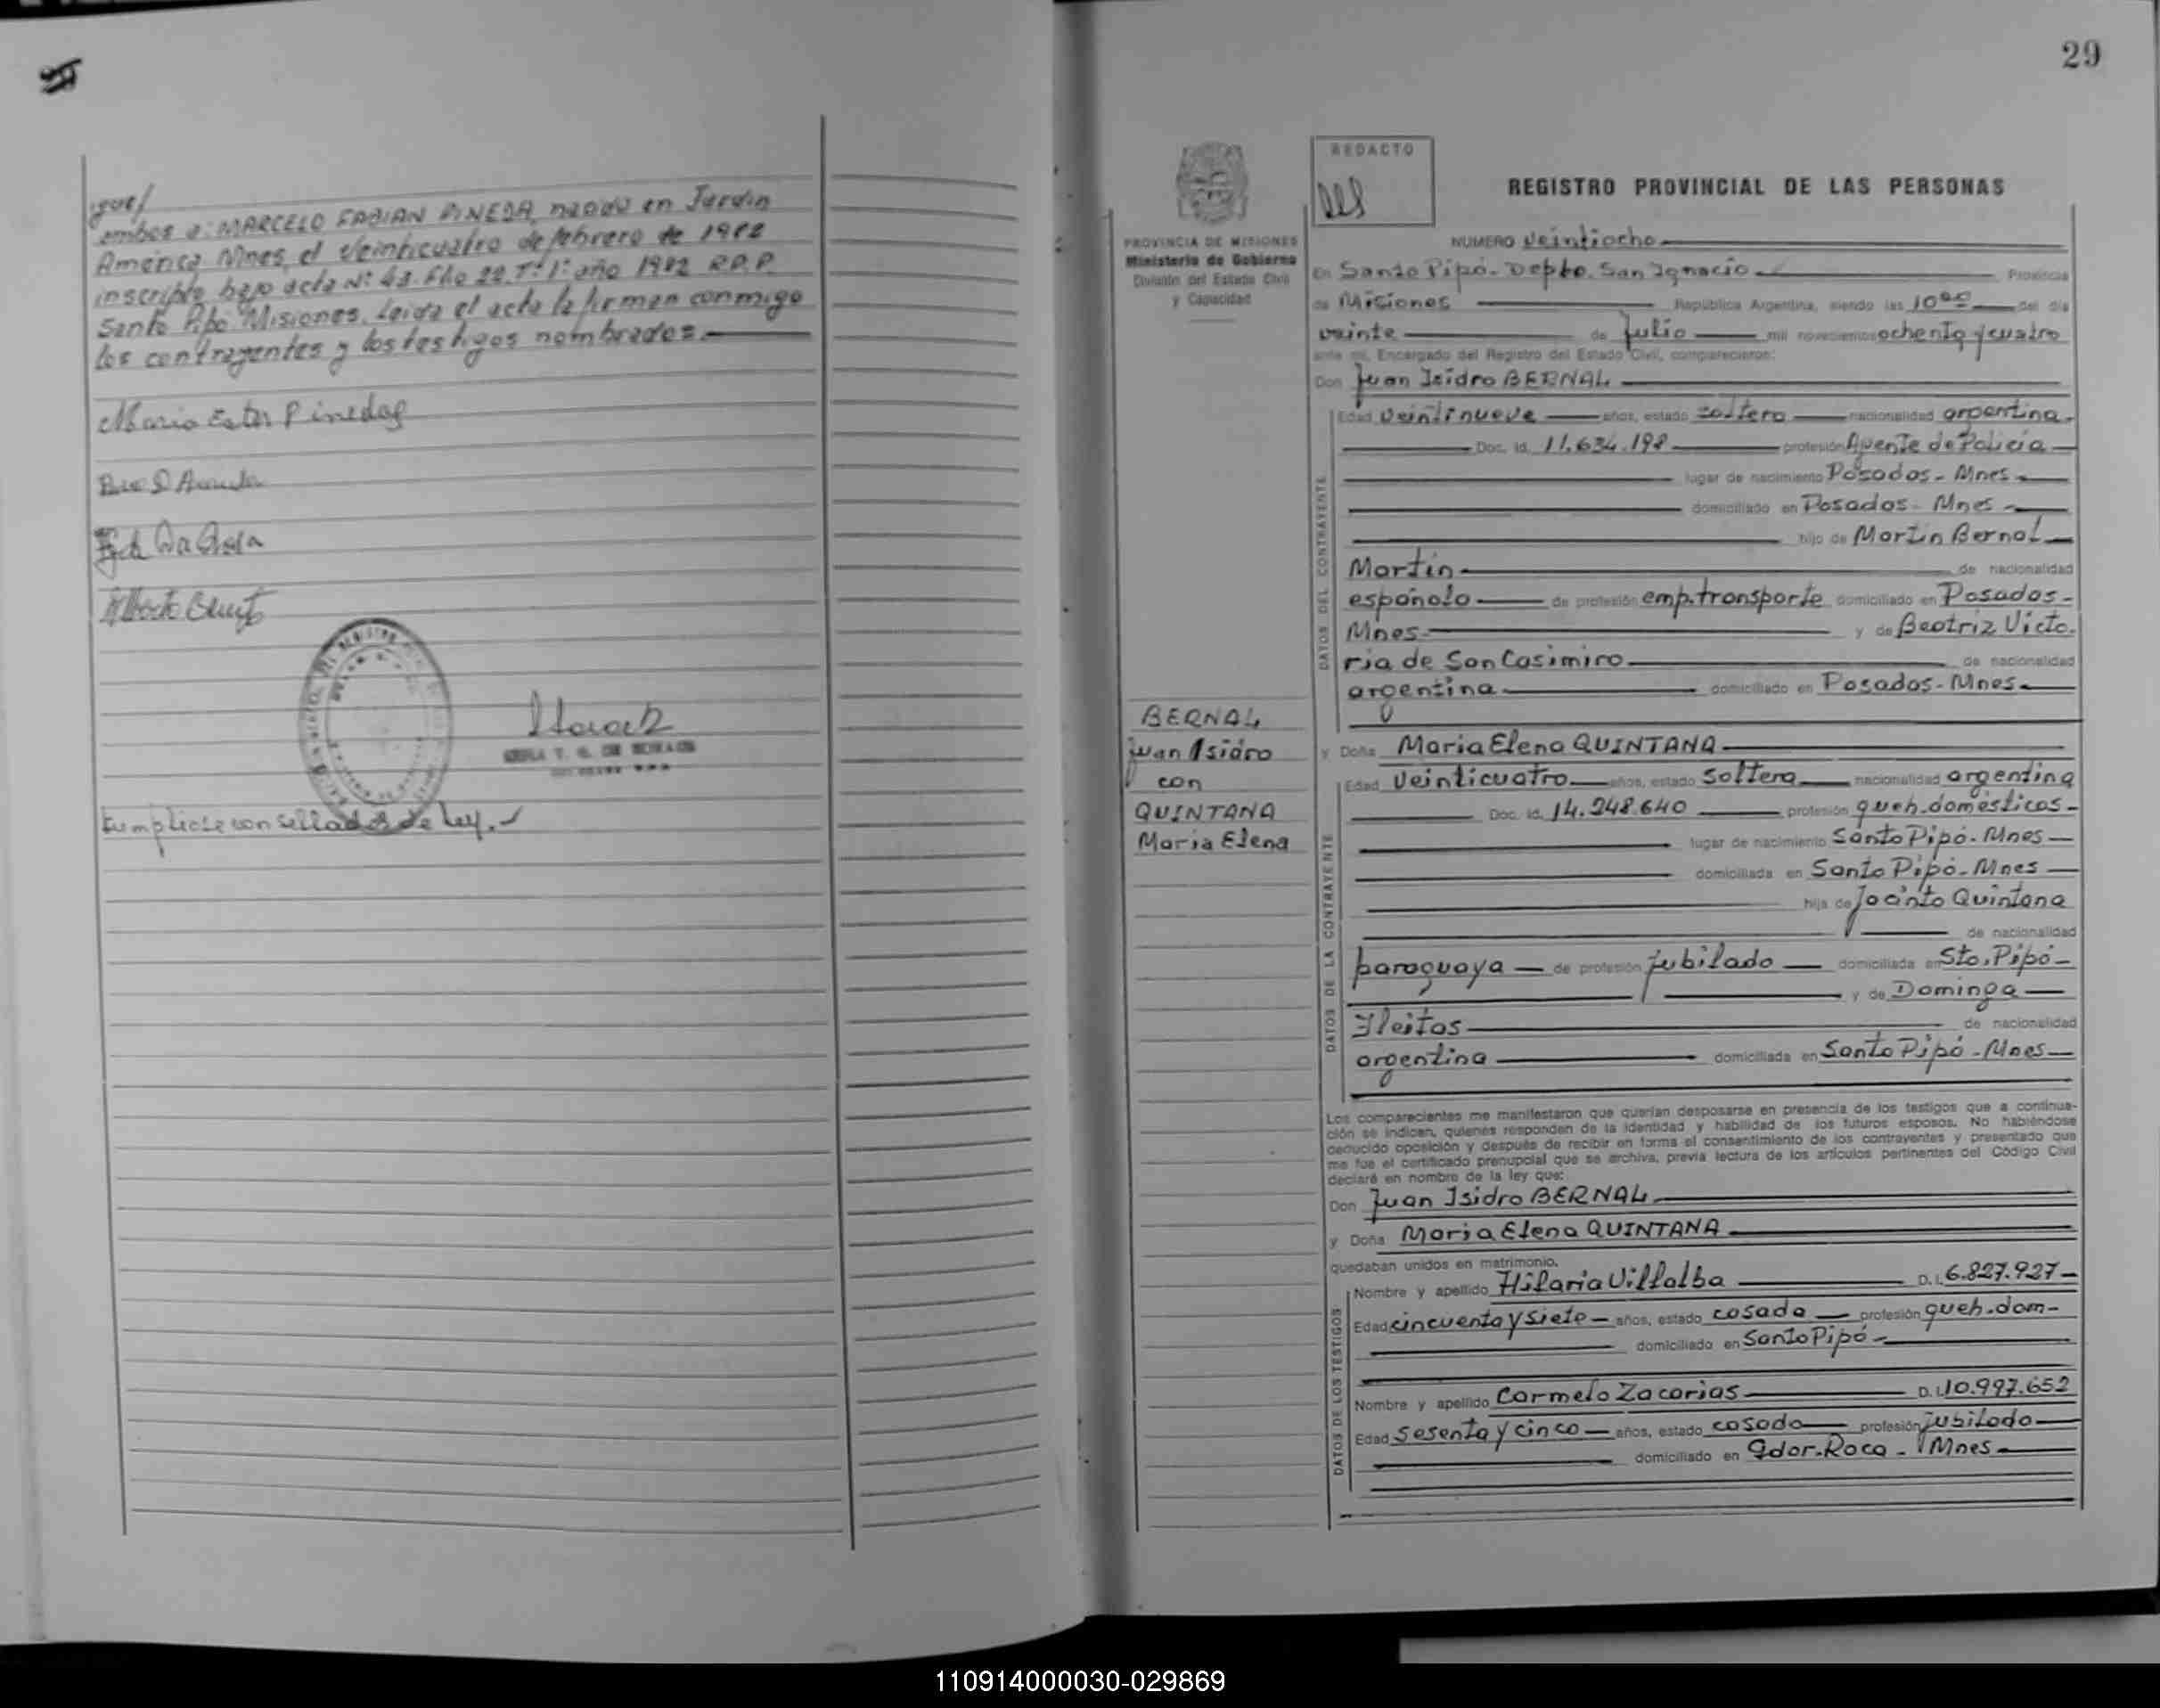 ambos a: MARCELO FABIAN PINEDA, nacido en Jardín
América Mnes, el veinticuatro de febrero de 1982
inscripto bajo acta Nº 43. Flio 22. Tº 1º año 1982 R.P.P.
Santo Pipó Misiones. Leída el acta la firman conmigo
los contrayentes y los testigos nombrados.
Maria Ester Pineda
Alberto
Cumpliose con sellados de ley.
29
REDACTO
REGISTRO PROVINCIAL DE LAS PERSONAS
PROVINCIA DE MISIONES
Ministerio de Gobierno
División del Estado Civil
y Capacidad
NUMERO Veintiocho
En Santo Pipó-Depto. San Ignacio Provincia
de Misiones República Argentina, siendo las 10 00 del día
veinte de Julio mil novecientos ochenta y cuatro
ante mí, Encargado del Registro del Estado Civil, comparecieron:
Don Juan Isidro BERNAL
DATOS DEL CONTRAYENTE
Edad Veintinueve años, estado soltero nacionalidad argentina.
Doc. Id. 11.634.198 profesión Agente de Policía
lugar de nacimiento Posadas-Mnes
domiciliado en Posadas-Mnes
hijo de Martín Bernal
Martín de nacionalidad
española de profesión emp.transporte domiciliado en Posadas-
Mnes. y de Beatriz Victo.
ria de San Casimiro de nacionalidad
argentina domiciliado en Posadas-Mnes
BERNAL
Juan Isidro
con
QUINTANA
Maria Elena
y Doña Maria Elena QUINTANA
DATOS DE LA CONTRAYENTE
Edad Veinticuatro años, estado soltera nacionalidad argentina
Doc. Id. 14.248.640 profesión queh.domésticos-
lugar de nacimiento Santo Pipó-Mnes
domiciliada en Santo Pipó-Mnes
hija de Jacinto Quintana
de nacionalidad
paraguaya de profesión jubilado domiciliada en Sto.Pipó-
y de Dominga
Fleitas de nacionalidad
argentina domiciliada en Santo Pipó-Mnes
Los comparecientes me manifestaron que querían desposarse en presencia de los testigos que a continua-
ción se indican, quienes responden de la identidad y habilidad de los futuros esposos. No habiéndose
deducido oposición y después de recibir en forma el consentimiento de los contrayentes y presentado que
me fue el certificado prenupcial que se archiva, previa lectura de los artículos pertinentes del Código Civil
declaré en nombre de la ley que:
Don Juan Isidro BERNAL
y Doña Maria Elena QUINTANA
quedaban unidos en matrimonio.
DATOS DE LOS TESTIGOS
Nombre y apellido Hilaria Villalba D.I. 6.827.927
Edad cincuenta y siete años, estado casada profesión queh.dom-
domiciliado en Santo Pipó
Nombre y apellido Carmelo Zacarias D.I. 10.997.652
Edad Sesenta y cinco años, estado casado profesión jubilado
domiciliado en Gdor.Roca-Mnes
110914000030-029869